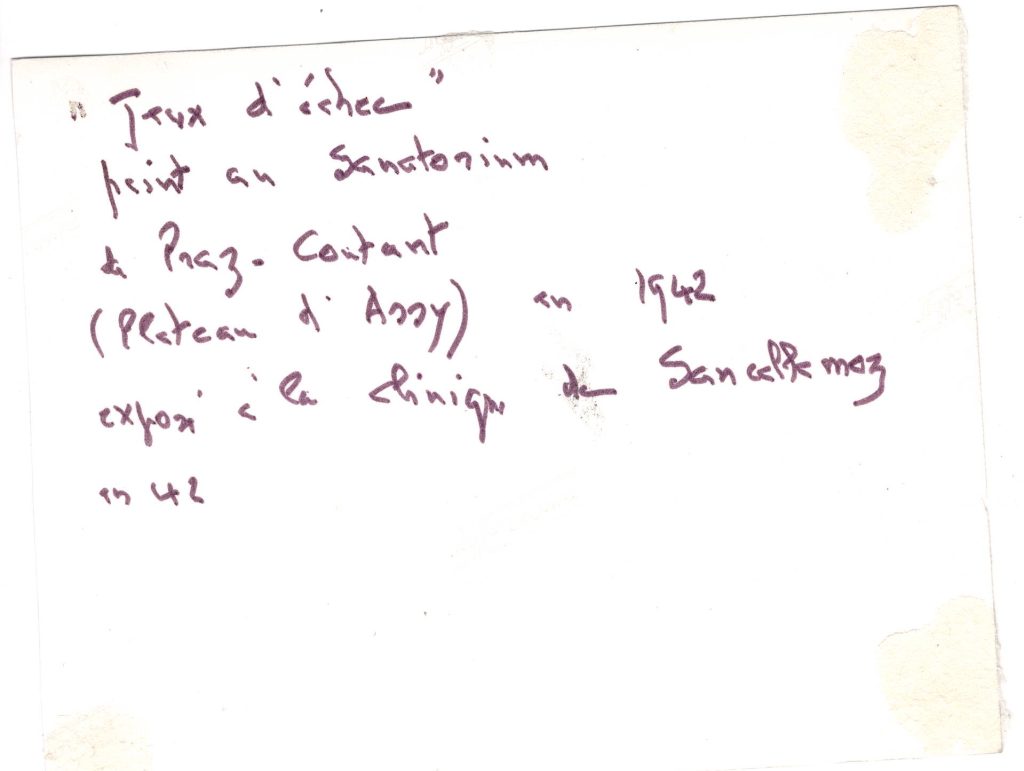 "Jeux d'échec"
peint au Sanatorium
de Praz-Coutant
(Plateau d'Assy) en 1942
exposé à la clinique de Sancellemoz
en 42